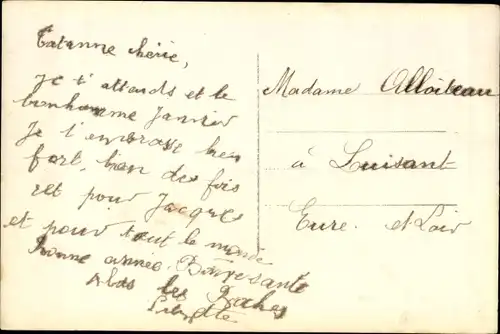 Tatanne chérie,
je t'attends et le
bonhomme Janvier
Je t'embrasse bien
fort, bien des fois
et pour Jacques
et pour tout le monde
Bonne année, Bonne santé
les
Madame Alloiteau
à Luisant
Eure et Loir